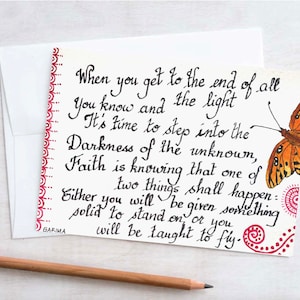 When you get to the end of all
you know and the light
It's time to step into the
Darkness of the unknown,
Faith is knowing that one of
two things shall happen:
Either you will be given something
solid to stand on or you
will be taught to fly.
GARIMA